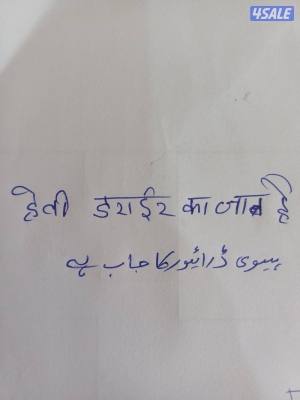 4SALE
हेवी डराईर का जाब है
ہیوی ڈرائیور کا جاب ہے